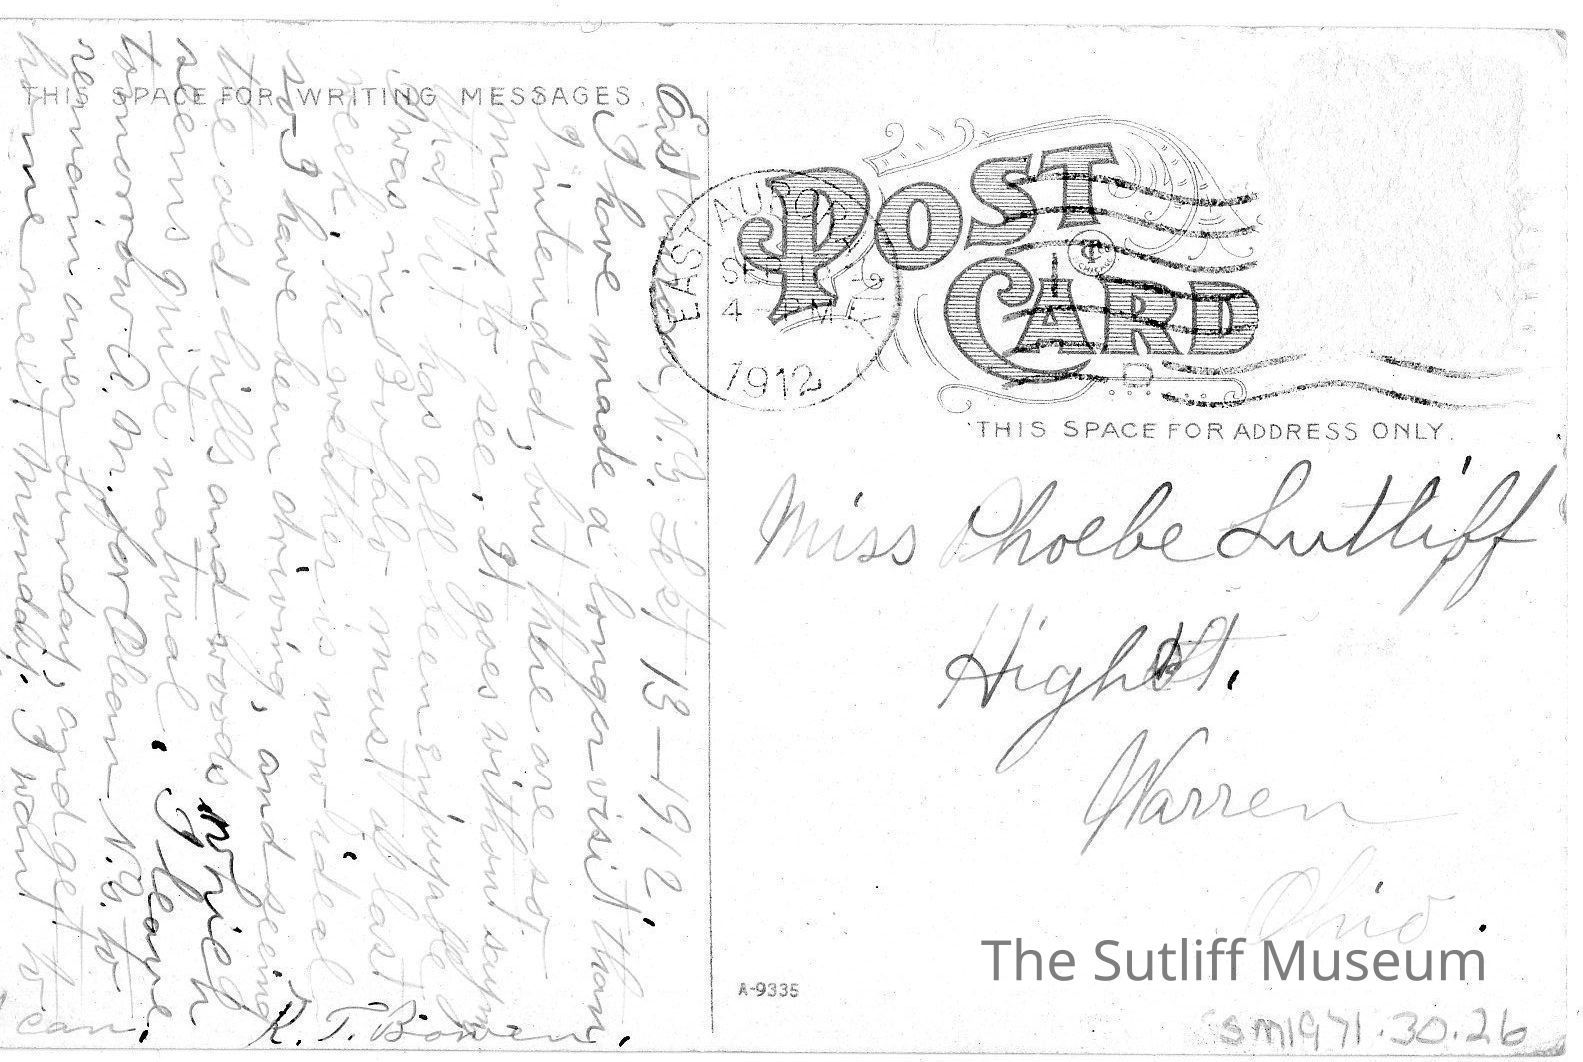 THIS SPACE FOR WRITING MESSAGES.
East Aurora, N.Y. Sept 13—1912.
I have made a longer visit than
I intended, but there are so
many to see, It goes without saying
that it has all been enjoyable
I was in Buffalo most of last
week, the weather is now ideal
so I have been driving, and seeing
the old hills and woods which
seems quite natural. I leave
tomorrow A.M. for Olean N.Y. to
remain over Sunday, and get to
home next Monday. I want to
can.
K. T. Bowen.
POST CARD
EAST AURORA
4 PM
1912
THIS SPACE FOR ADDRESS ONLY.
Miss Phoebe Sutliff
High St.
Warren
Ohio.
A-9335
The Sutliff Museum
SM1971.30.26